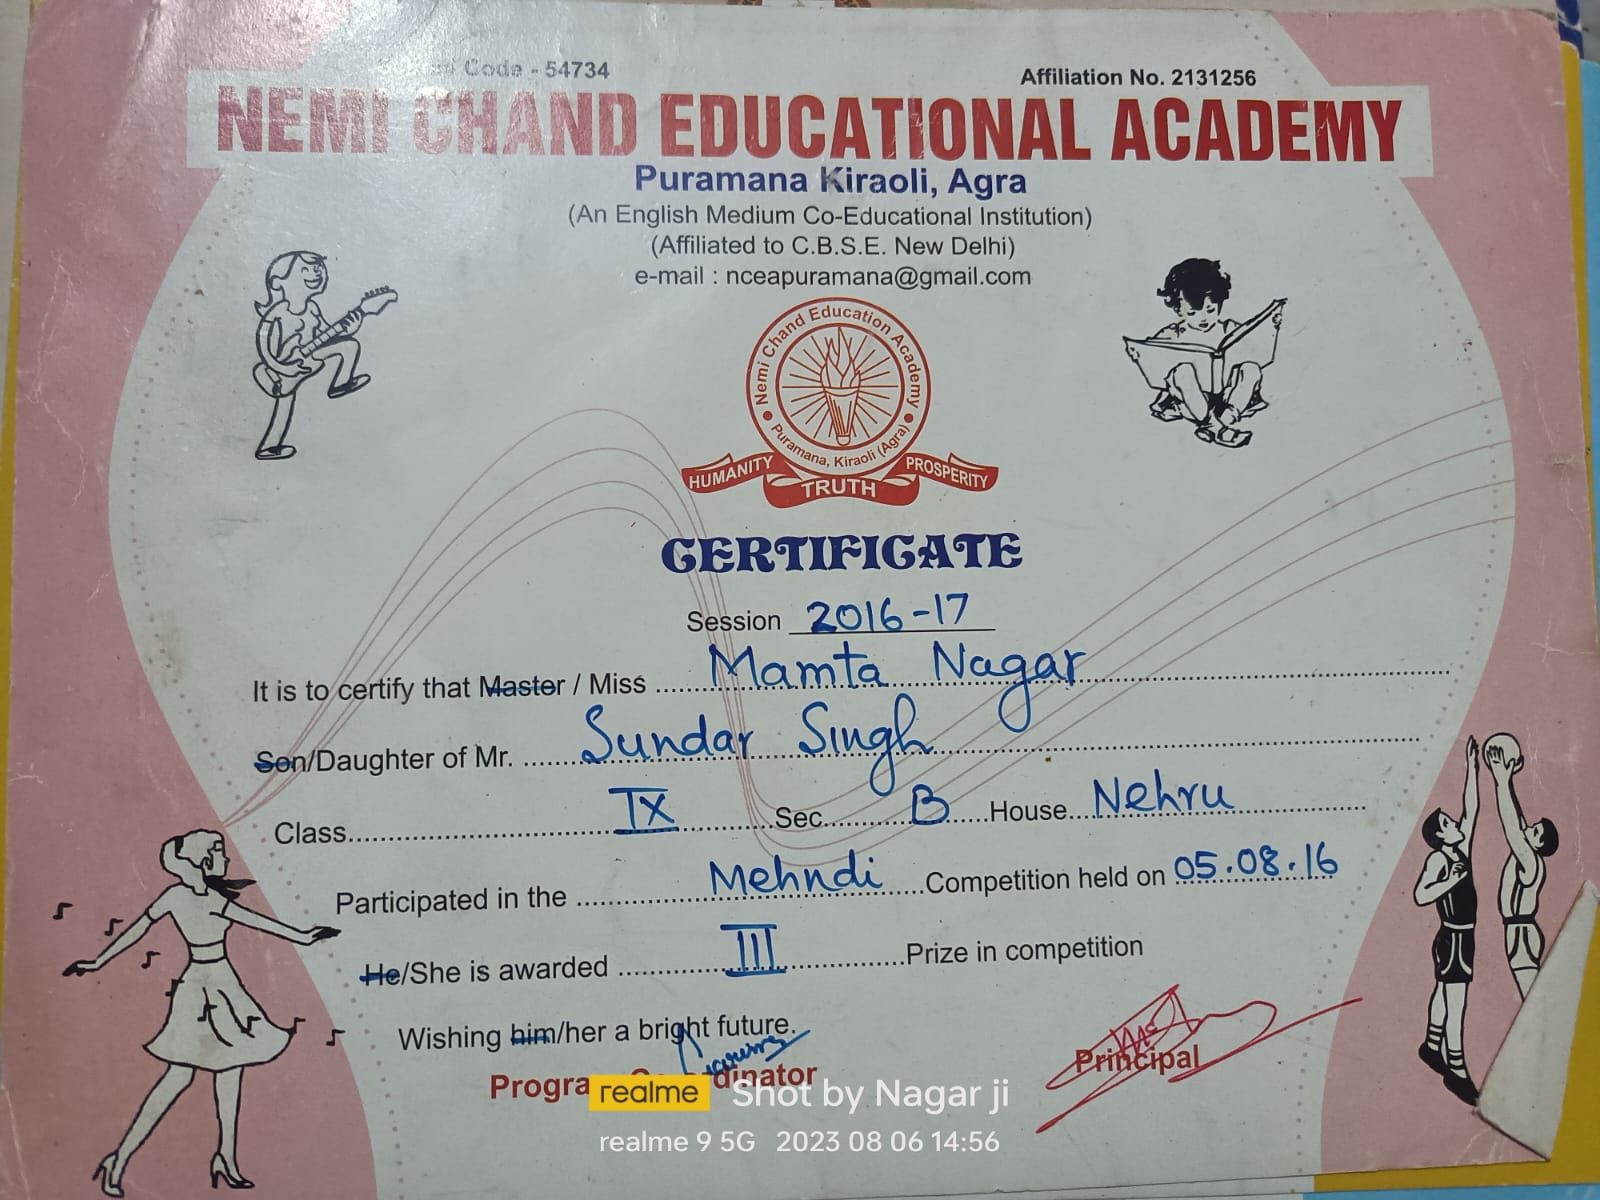 Code - 54734
Affiliation No. 2131256
NEMI CHAND EDUCATIONAL ACADEMY
Puramana Kiraoli, Agra
(An English Medium Co-Educational Institution)
(Affiliated to C.B.S.E. New Delhi)
e-mail : nceapuramana@gmail.com
Nemi Chand Education Academy
Puramana, Kiraoli (Agra)
HUMANITY TRUTH PROSPERITY
CERTIFICATE
Session 2016-17
It is to certify that Master / Miss Mamta Nagar
Son/Daughter of Mr. Sundar Singh
Class IX Sec. B House Nehru
Participated in the Mehndi Competition held on 05.08.16
He/She is awarded III Prize in competition
Wishing him/her a bright future.
Principal
realme Shot by Nagar ji
realme 9 5G 2023 08 06 14:56